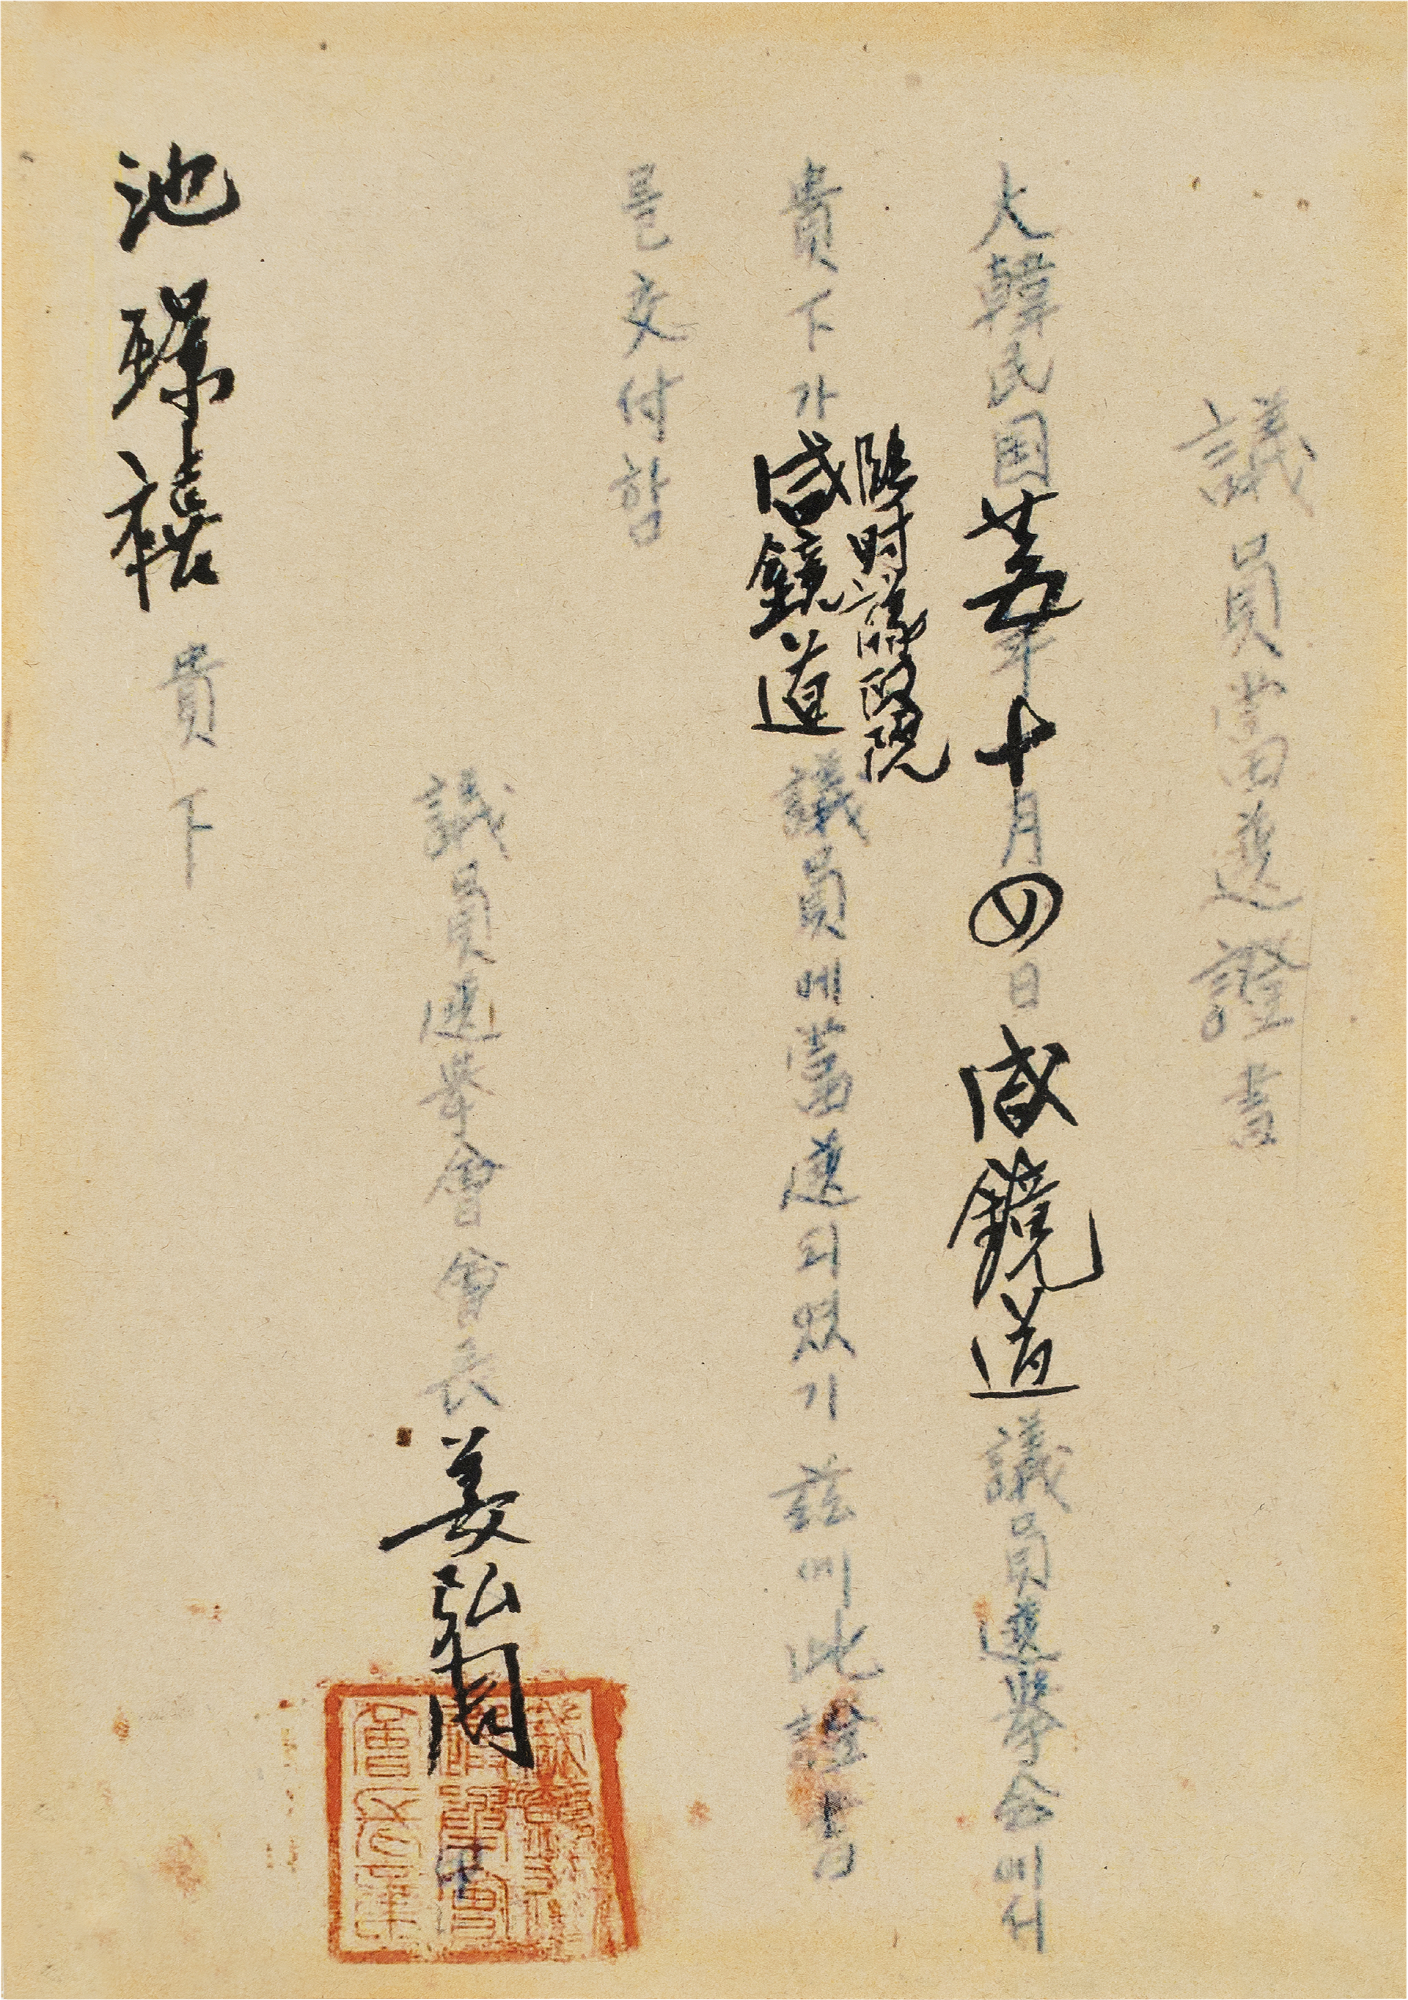 議員當選證書
大韓民国廿五年十月四日咸鏡道議員選擧会에서
貴下가臨時議政院咸鏡道議員에當選되였기玆에此證書
를交付함
議員選擧會會長姜弘周印
池璟禧貴下